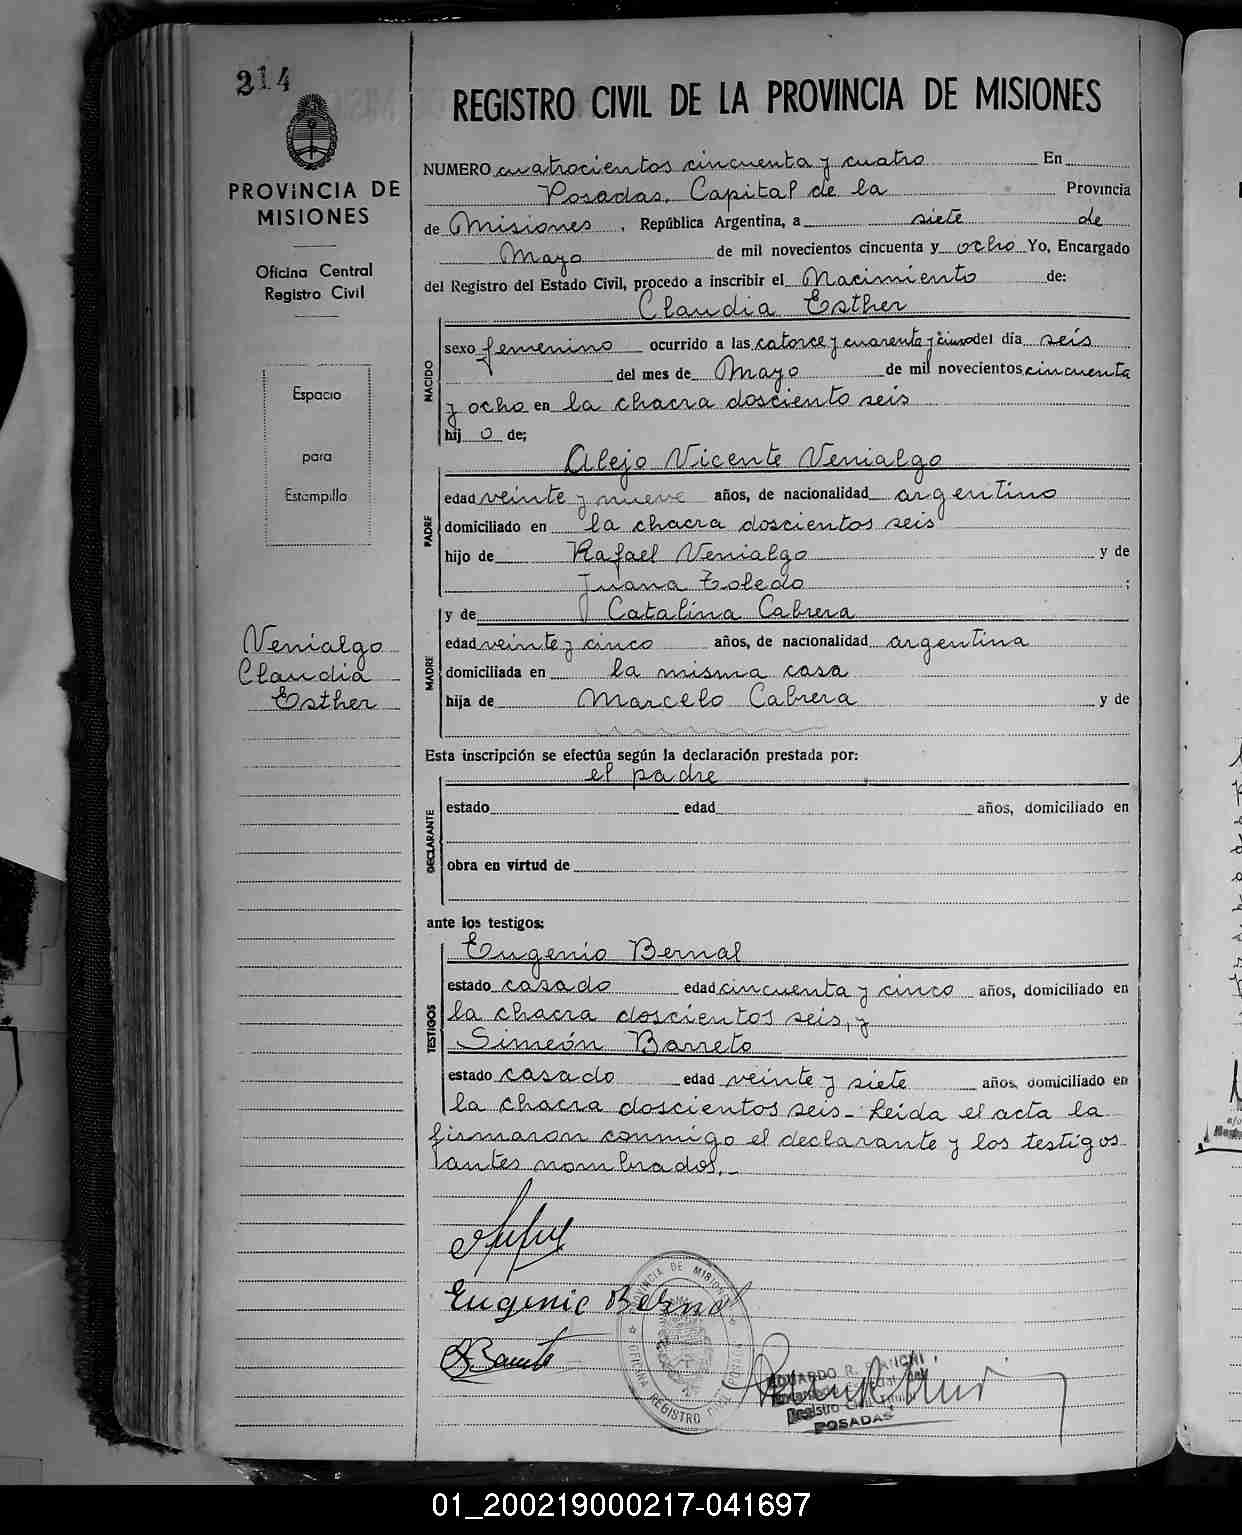 214
REGISTRO CIVIL DE LA PROVINCIA DE MISIONES
PROVINCIA DE
MISIONES
Oficina Central
Registro Civil
Espacio
para
Estampilla
Venialgo
Claudia
Esther
NUMERO cuatrocientos cincuenta y cuatro En
Posadas, Capital de la Provincia
de Misiones, República Argentina, a siete de
Mayo de mil novecientos cincuenta y ocho Yo, Encargado
del Registro del Estado Civil, procedo a inscribir el Nacimiento de:
Claudia Esther
NACIDO
sexo femenino ocurrido a las catorce y cuarenta y cinco del día seis
del mes de Mayo de mil novecientos cincuenta
y ocho en la chacra dosciento seis
hij o de;
Alejo Vicente Venialgo
PADRE
edad veinte y nueve años, de nacionalidad argentino
domiciliado en la chacra doscientos seis
hijo de Rafael Venialgo y de
Juana Toledo ;
y de Catalina Cabrera
MADRE
edad veinte y cinco años, de nacionalidad argentina
domiciliada en la misma casa
hija de Marcelo Cabrera y de
Esta inscripción se efectúa según la declaración prestada por:
el padre
DECLARANTE
estado edad años, domiciliado en
obra en virtud de
ante los testigos:
Eugenio Bernal
TESTIGOS
estado casado edad cincuenta y cinco años, domiciliado en
la chacra doscientos seis, y
Simeón Barreto
estado casado edad veinte y siete años, domiciliado en
la chacra doscientos seis- Leida el acta la
firmaron conmigo el declarante y los testigos
antes nombrados.-
Eugenio Bernal
PROVINCIA DE MISIONES
OFICINA REGISTRO CIVIL POSADAS
EDUARDO R. BIANCHI
Registro Civil
POSADAS
01_200219000217-041697